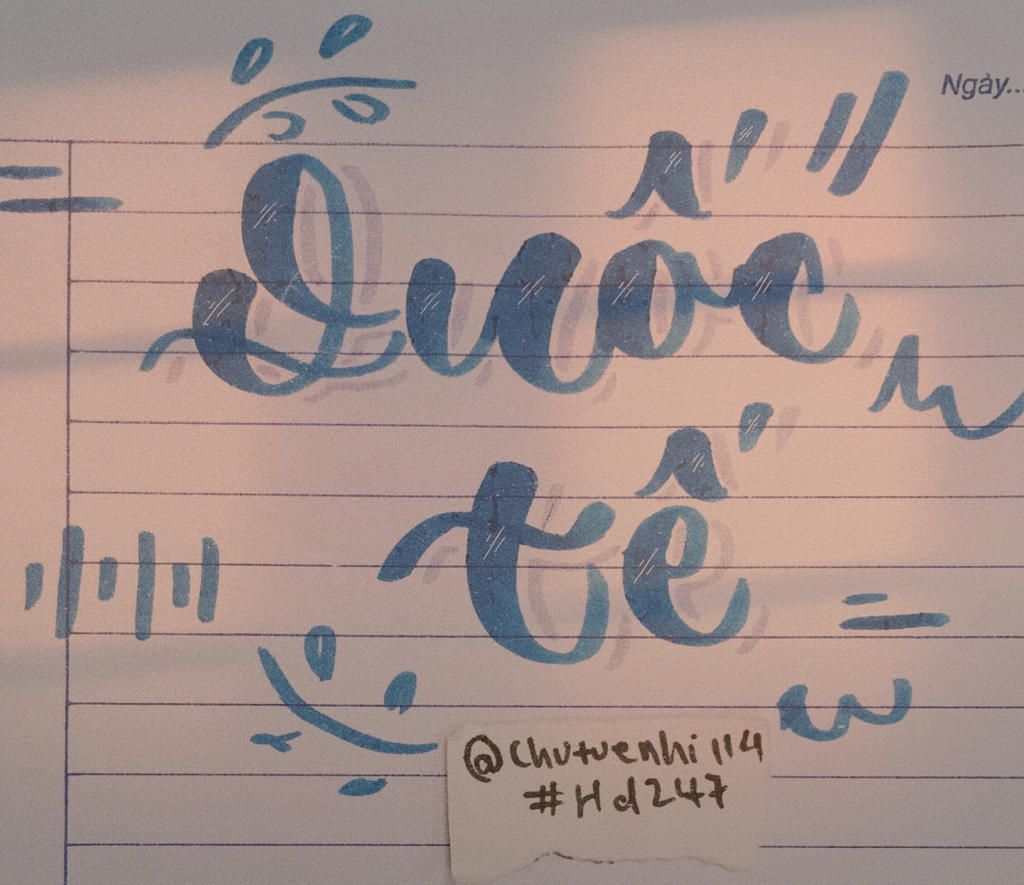 Ngày...
Quốc
tế
@chutuenhi114
#Hd247